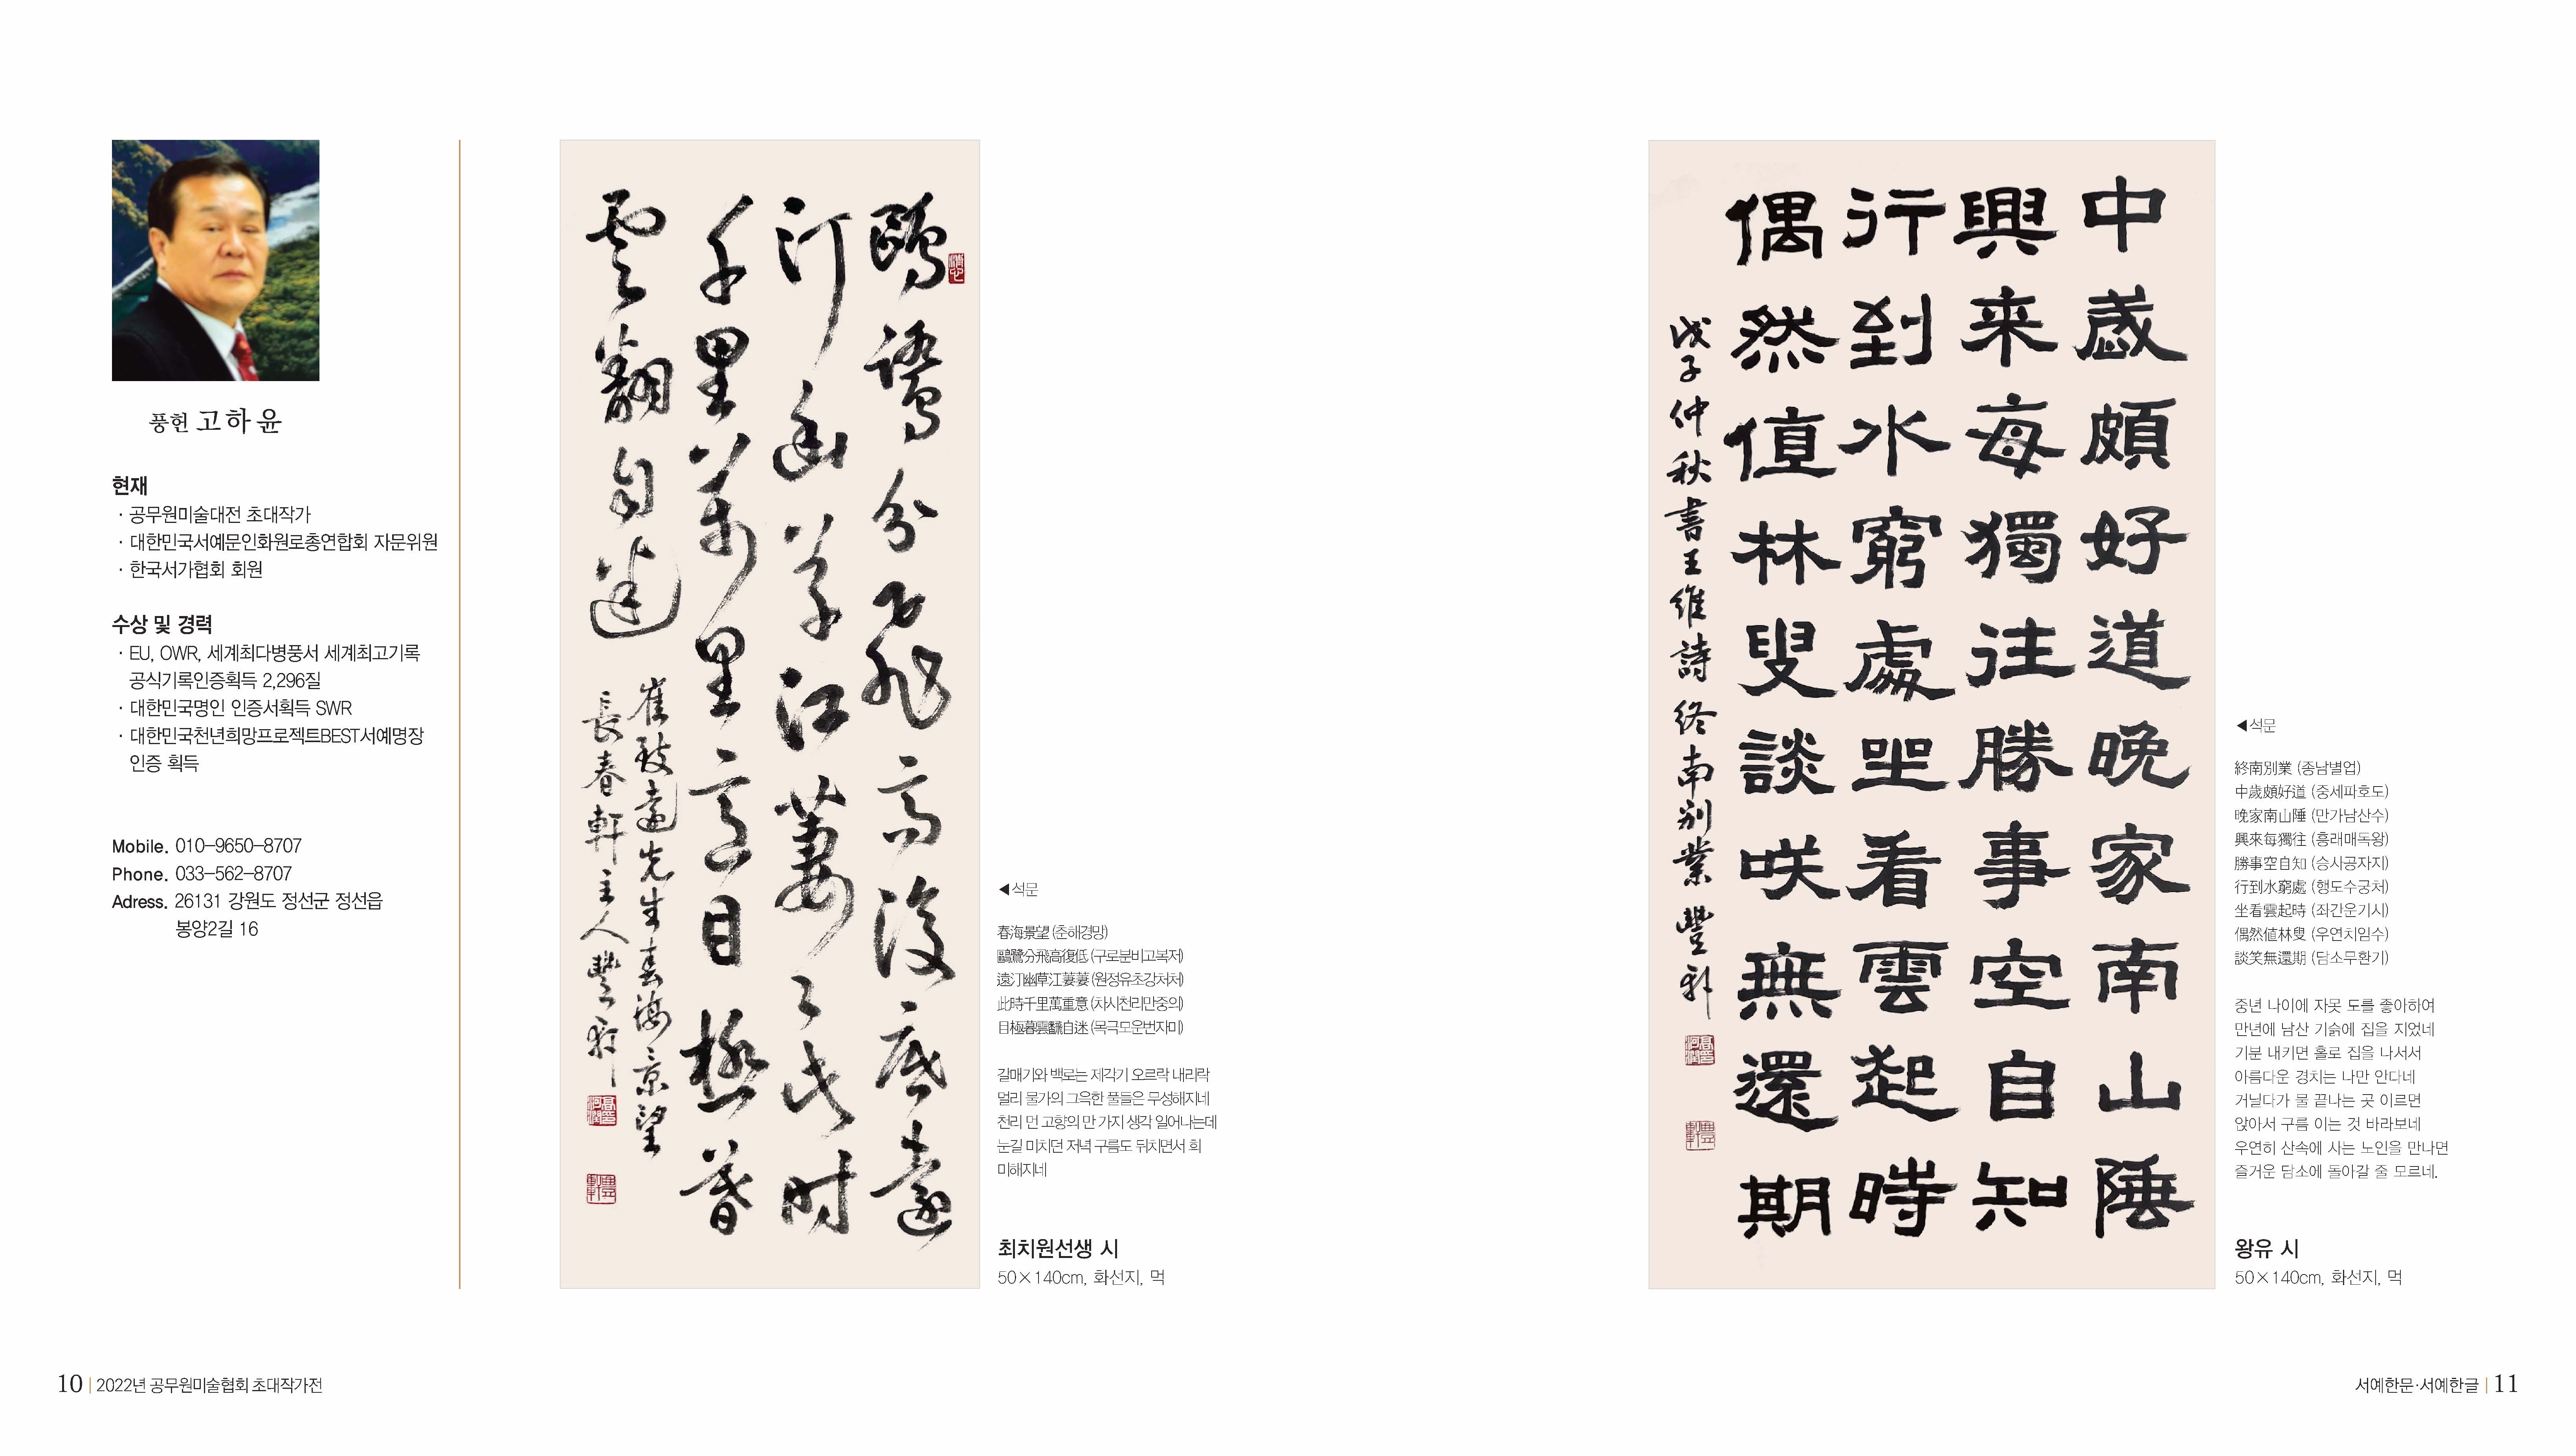 풍헌 고하윤
현재
· 공무원미술대전 초대작가
· 대한민국서예문인화원로총연합회 자문위원
· 한국서가협회 회원
수상 및 경력
· EU, OWR, 세계최다병풍서 세계최고기록
공식기록인증획득 2,296질
· 대한민국명인 인증서획득 SWR
· 대한민국천년희망프로젝트BEST서예명장
인증 획득
Mobile. 010-9650-8707
Phone. 033-562-8707
Adress. 26131 강원도 정선군 정선읍
봉양2길 16
鷗鷺分飛高復底遠
汀幽草江萋〻此時
千里萬里意目極暮
雲翻自迷
崔致遠先生春海景望
長春軒主人豊軒
◀석문
春海景望 (춘해경망)
鷗鷺分飛高復低 (구로분비고복저)
遠汀幽草江萋萋 (원정유초강처처)
此時千里萬重意 (차시천리만중의)
目極暮雲飜自迷 (목극모운번자미)
갈매기와 백로는 제각기 오르락 내리락
멀리 물가의 그윽한 풀들은 무성해지네
천리 먼 고향의 만 가지 생각 일어나는데
눈길 미치던 저녁 구름도 뒤치면서 희
미해지네
최치원선생 시
50×140cm, 화선지, 먹
中歲頗好道晚家南山陲
興来每獨往勝事空自知
行到水窮處坐看雲起時
偶然値林叟談咲無還期
戊子仲秋書王維詩 終南別業 豊軒
◀석문
終南別業 (종남별업)
中歲頗好道 (중세파호도)
晚家南山陲 (만가남산수)
興來每獨往 (흥래매독왕)
勝事空自知 (승사공자지)
行到水窮處 (행도수궁처)
坐看雲起時 (좌간운기시)
偶然値林叟 (우연치임수)
談笑無還期 (담소무환기)
중년 나이에 자못 도를 좋아하여
만년에 남산 기슭에 집을 지었네
기분 내키면 홀로 집을 나서서
아름다운 경치는 나만 안다네
거닐다가 물 끝나는 곳 이르면
앉아서 구름 이는 것 바라보네
우연히 산속에 사는 노인을 만나면
즐거운 담소에 돌아갈 줄 모르네.
왕유 시
50×140cm, 화선지, 먹
10 | 2022년 공무원미술협회 초대작가전
서예한문·서예한글 | 11